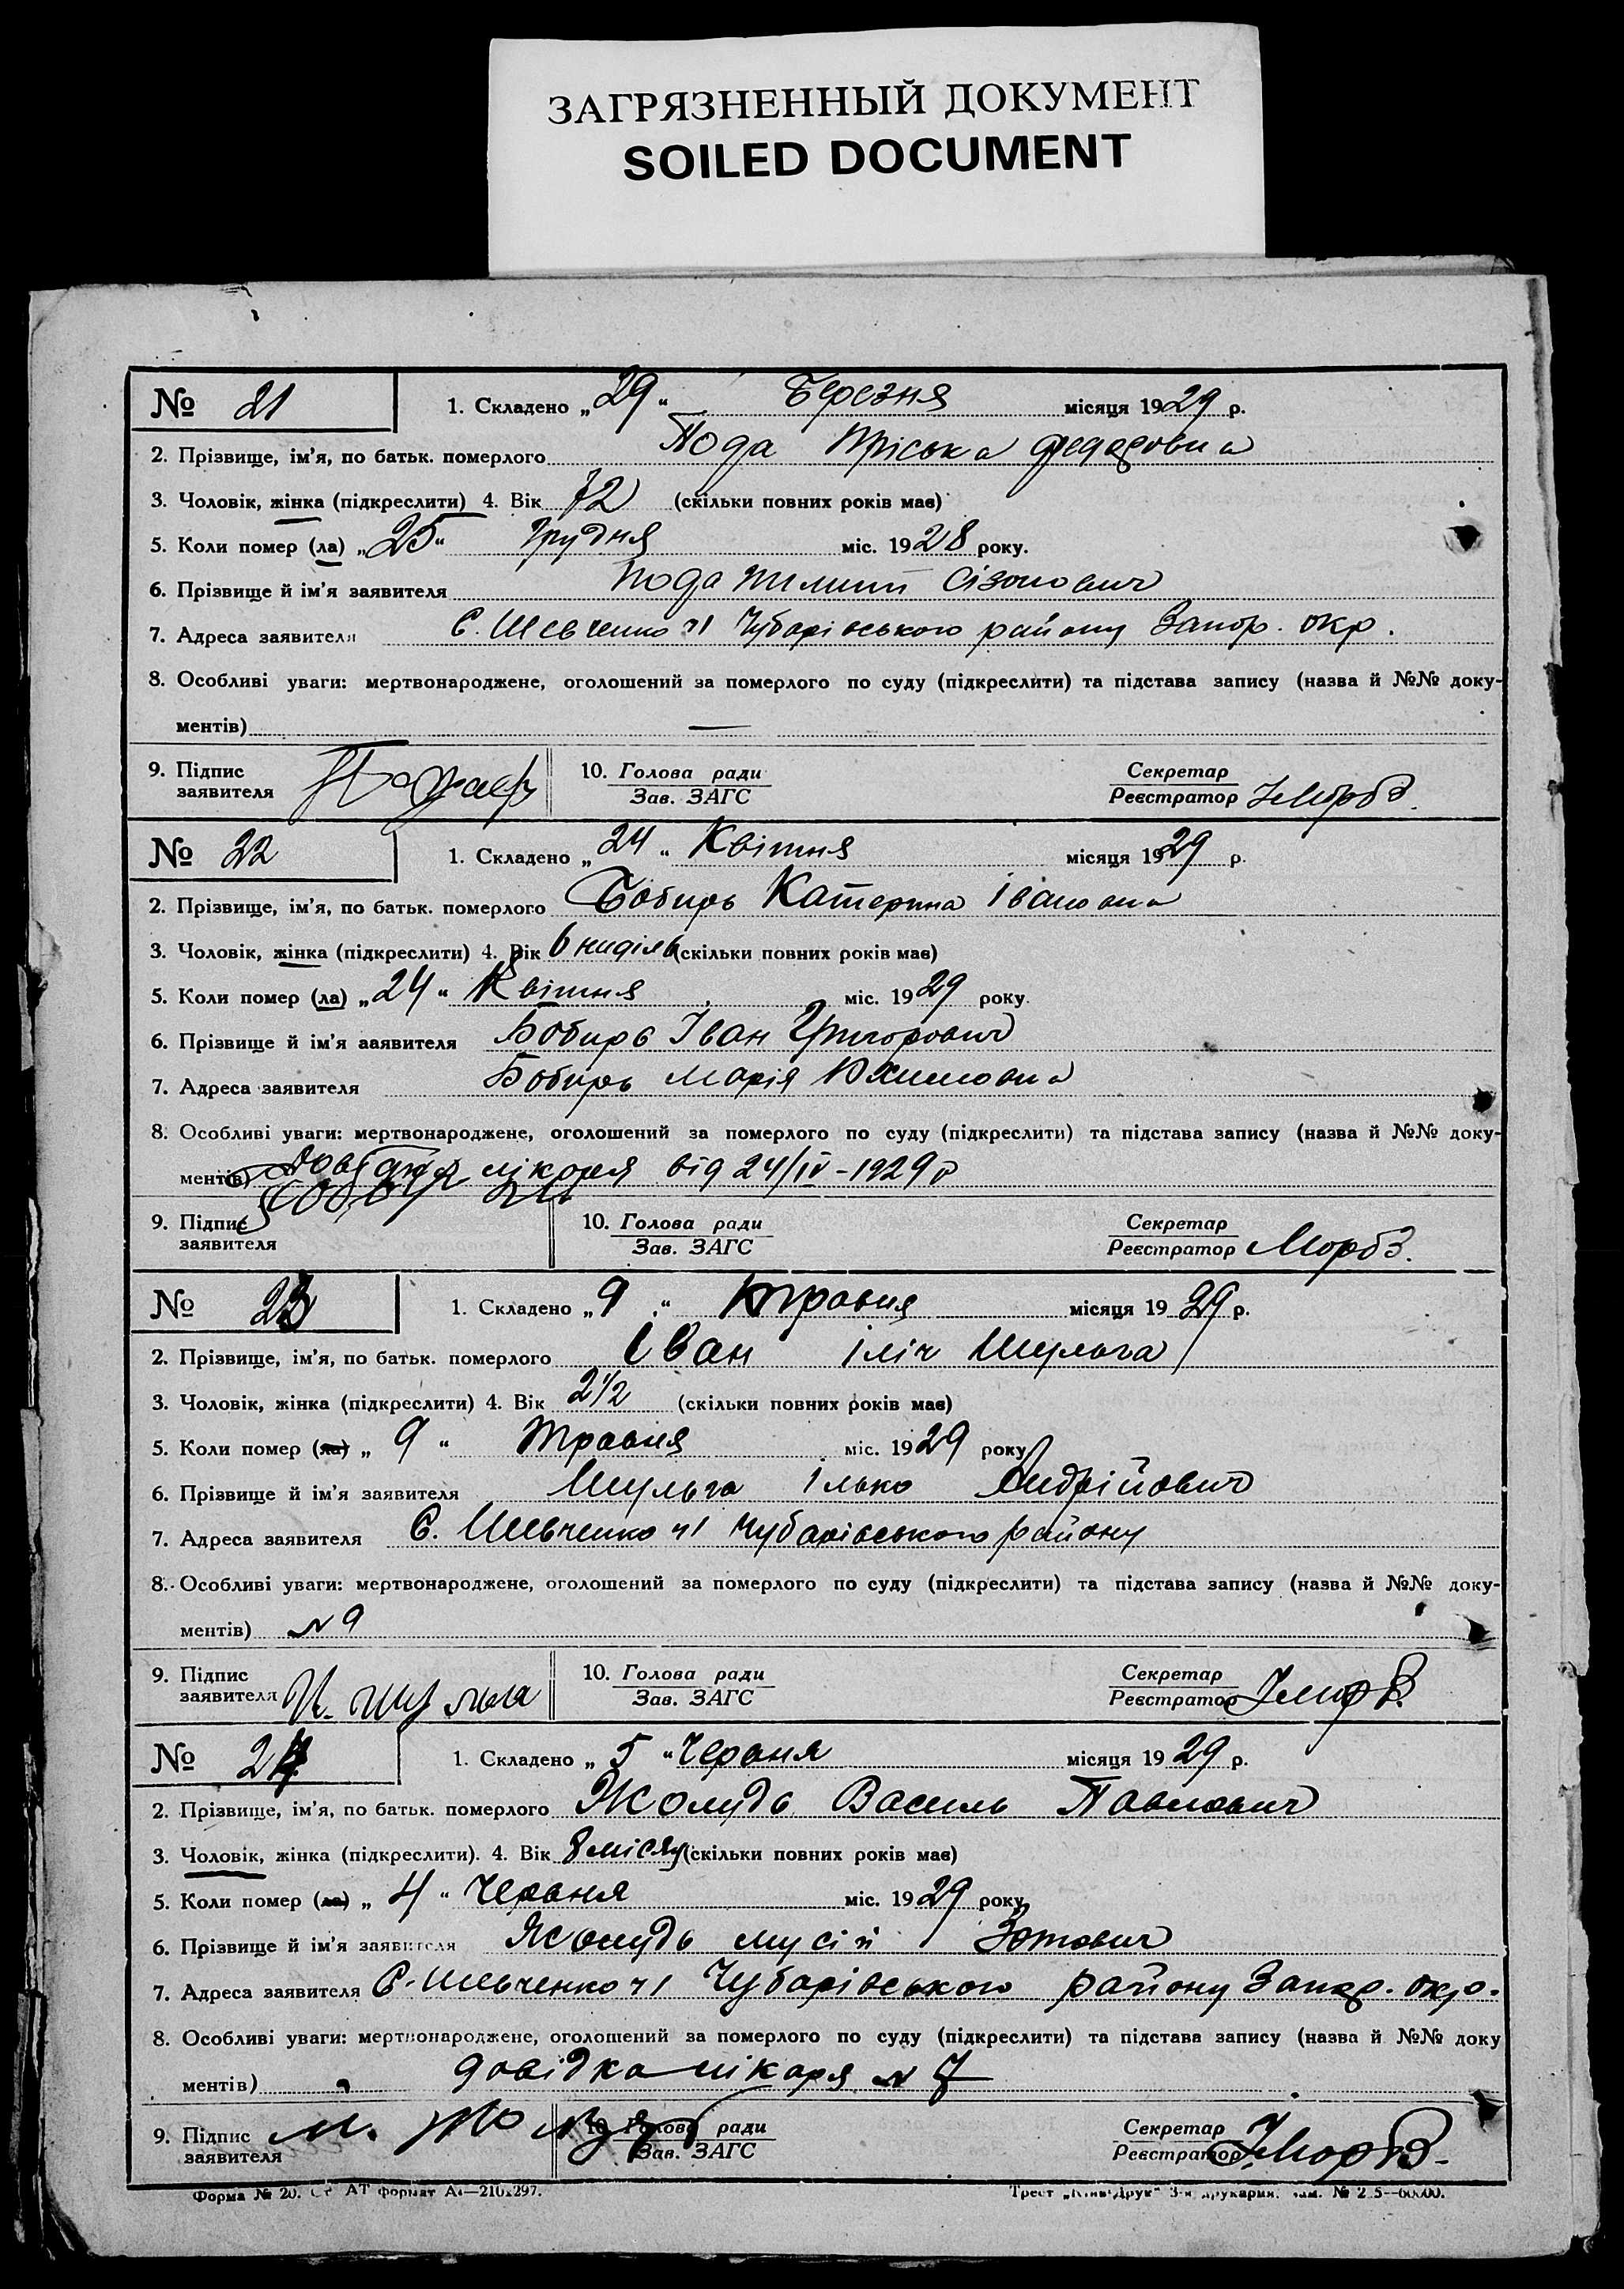 ЗАГРЯЗНЕННЫЙ ДОКУМЕНТ
SOILED DOCUMENT
№ 21 1. Складено „29“ Березня місяця 1929 р.
2. Прізвище, ім'я, по батьк. померлого Пода Пріська Федоровна
3. Чоловік, жінка (підкреслити) 4. Вік 72 (скільки повних років має)
5. Коли помер (ла) „25“ Грудня міс. 1928 року.
6. Прізвище й ім'я заявителя Пода Пилип Сізонович
7. Адреса заявителя С. Шевченко ч1 Чубарівського району Запор. окр.
8. Особливі уваги: мертвонароджене, оголошений за померлого по суду (підкреслити) та підстава запису (назва й №№ доку-
ментів) —
9. Підпис заявителя 10. Голова ради Зав. ЗАГС Секретар Реєстратор
№ 22 1. Складено „24“ Квітня місяця 1929 р.
2. Прізвище, ім'я, по батьк. померлого Бобирь Катерина Івановна
3. Чоловік, жінка (підкреслити) 4. Вік 6 ниділь (скільки повних років має)
5. Коли помер (ла) „24“ Квітня міс. 1929 року.
6. Прізвище й ім'я заявителя Бобирь Іван Григорович
7. Адреса заявителя Бобирь Марія
8. Особливі уваги: мертвонароджене, оголошений за померлого по суду (підкреслити) та підстава запису (назва й №№ доку-
ментів) лікаря від 24/IV-1929 р
9. Підпис заявителя 10. Голова ради Зав. ЗАГС Секретар Реєстратор
№ 23 1. Складено „9“ травня місяця 1929 р.
2. Прізвище, ім'я, по батьк. померлого Іван Ілiч Шульга
3. Чоловік, жінка (підкреслити) 4. Вік 2½ (скільки повних років має)
5. Коли помер (ла) „9“ Травня міс. 1929 року
6. Прізвище й ім'я заявителя Шульга Ілько Андрійович
7. Адреса заявителя С. Шевченко ч1 Чубарівського району
8. Особливі уваги: мертвонароджене, оголошений за померлого по суду (підкреслити) та підстава запису (назва й №№ доку-
ментів) № 9
9. Підпис заявителя И. Шульга 10. Голова ради Зав. ЗАГС Секретар Реєстратор
№ 24 1. Складено „5“ Червня місяця 1929 р.
2. Прізвище, ім'я, по батьк. померлого Жолудь Василь Павлович
3. Чоловік, жінка (підкреслити). 4. Вік 8 місяц (скільки повних років має)
5. Коли помер (ла) „4“ Червня міс. 1929 року
6. Прізвище й ім'я заявителя Жолудь Мусій Зотович
7. Адреса заявителя С. Шевченко ч1 Чубарівського району Запор. окр.
8. Особливі уваги: мертвонароджене, оголошений за померлого по суду (підкреслити) та підстава запису (назва й №№ доку
ментів) довідка лікаря № 7
9. Підпис заявителя М. Жолудь 10. Голова ради Зав. ЗАГС Секретар Реєстратор
Форма № 20. АТ формат А4—210х297. Трест „Київ-Друк“ 3-я друкарня.